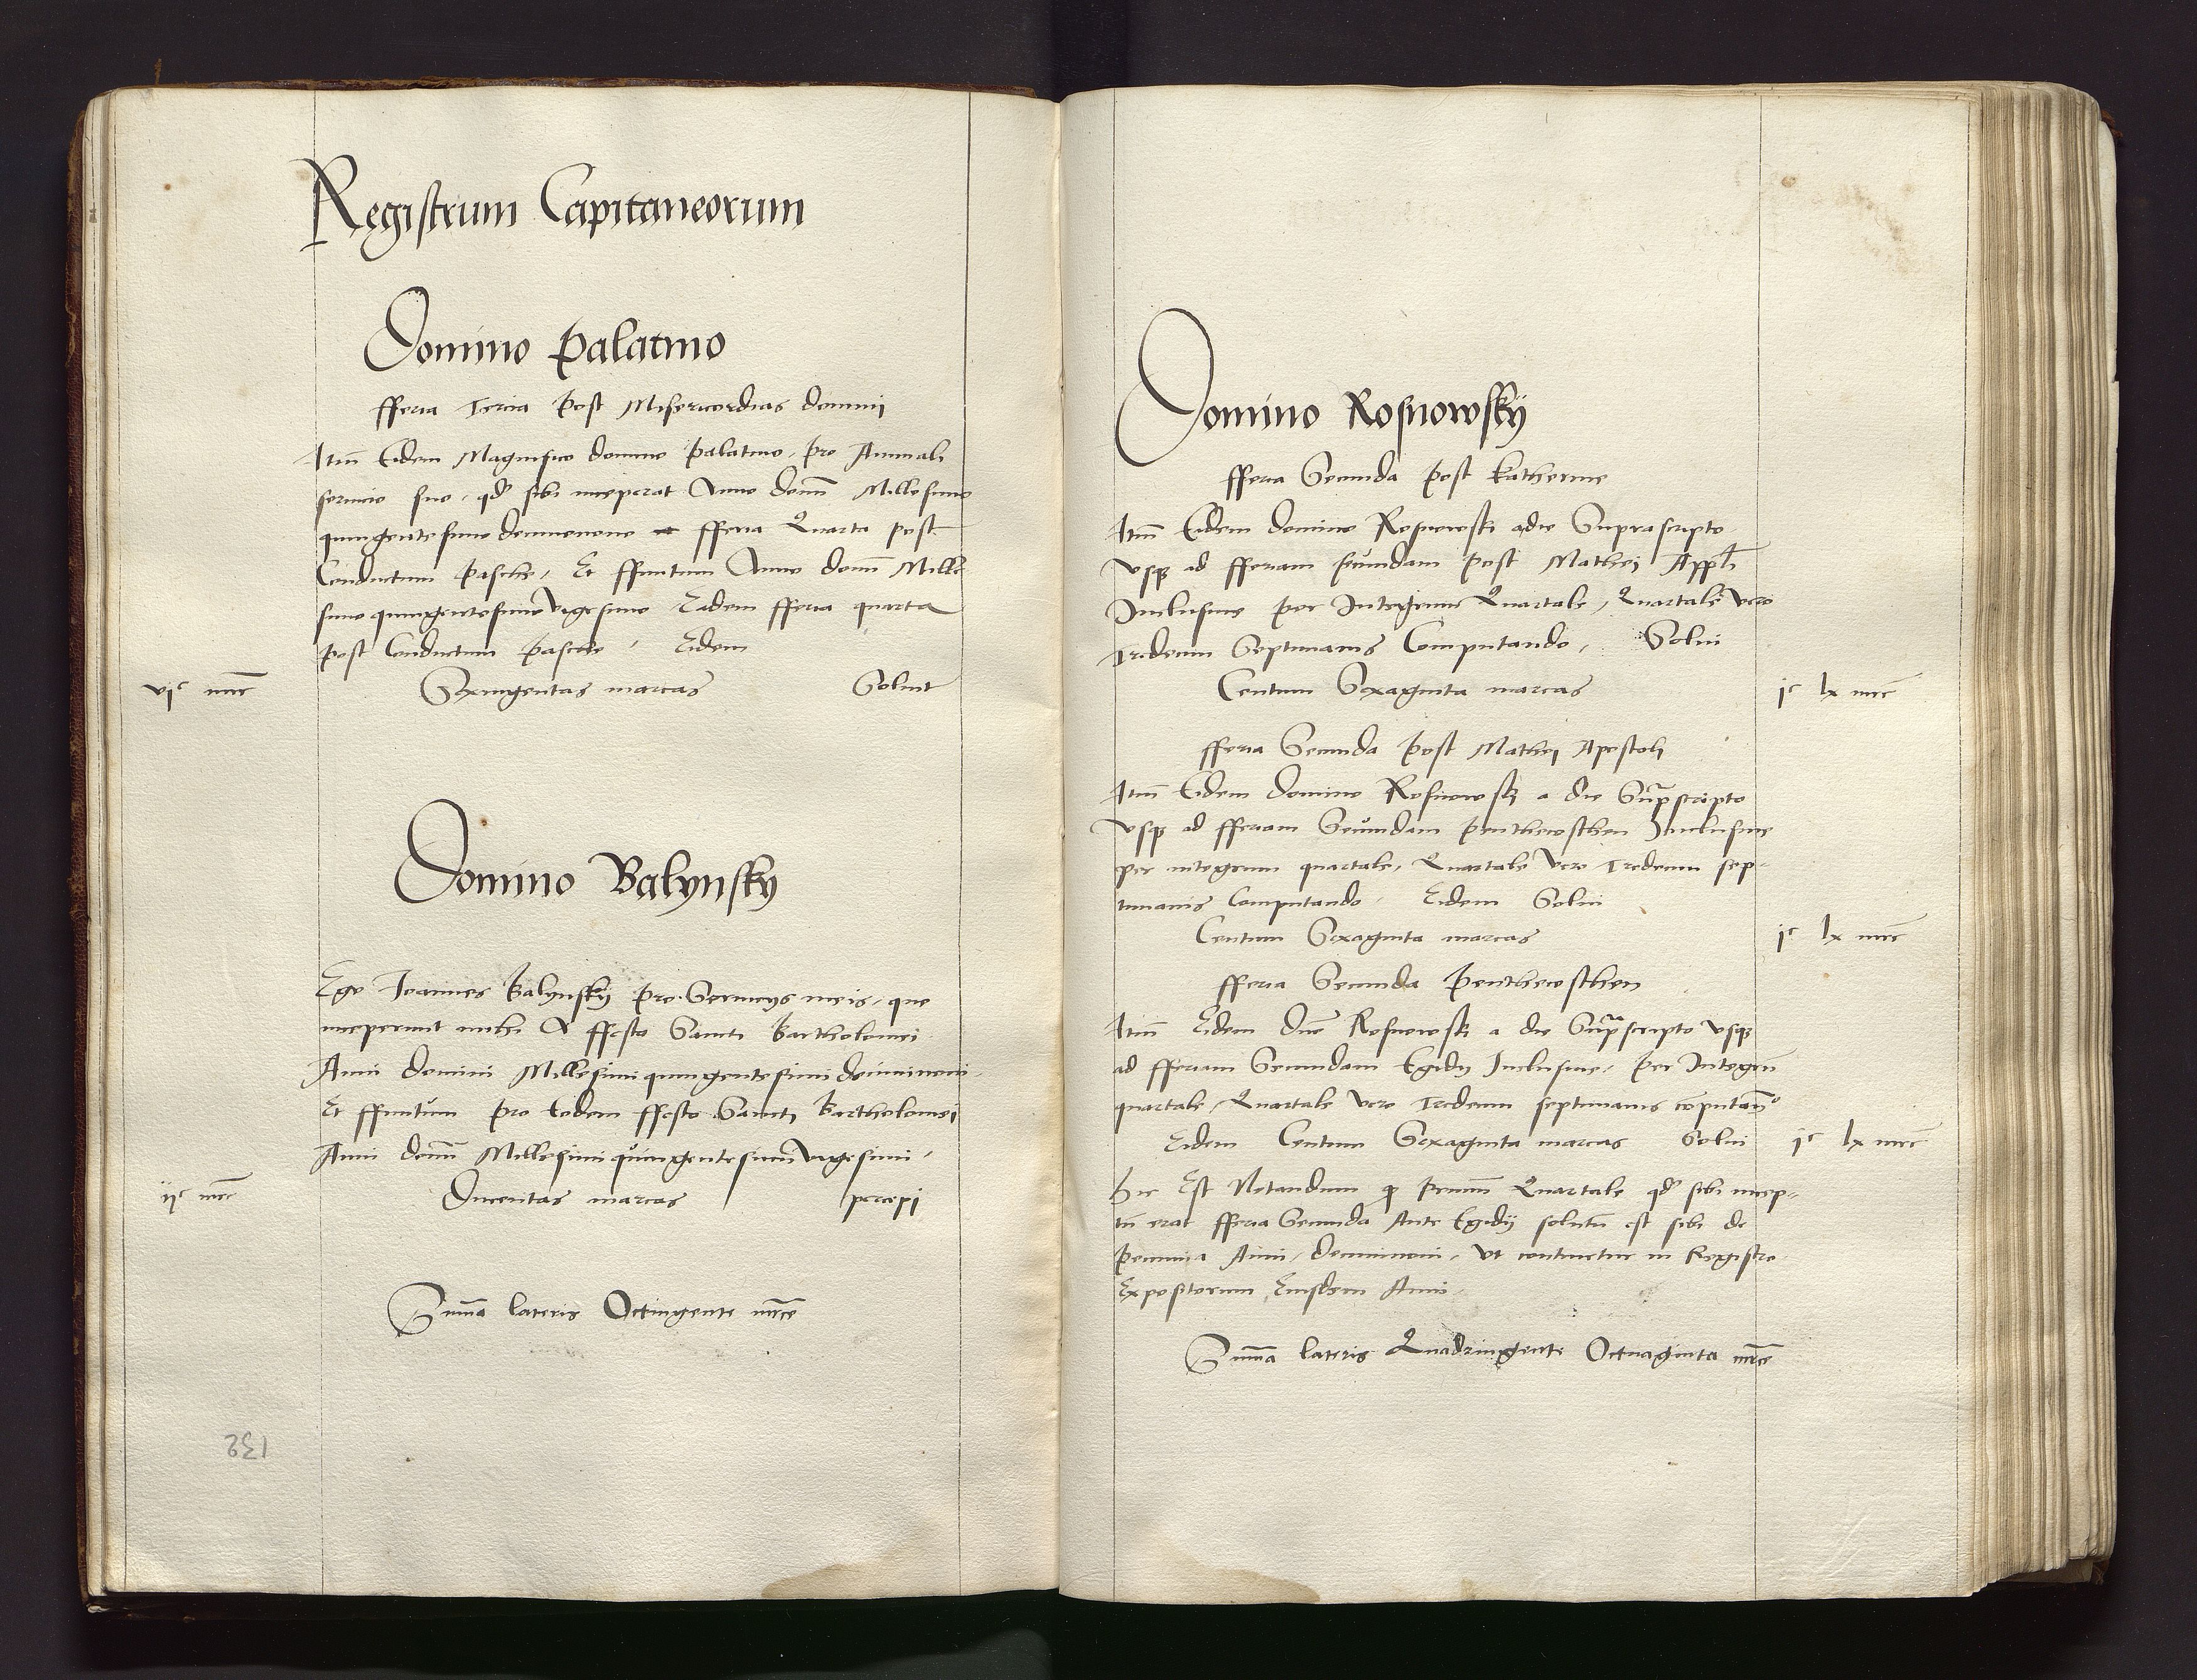 Registrum Capitaneorum
Domino Palatino
fferia Tercia Post Misericordias domini
Itm̄ Eidem Magnifico domino Palatino, pro Annuali
servicio suo, qđ sibi inceperat Anno domī Millesimo
quingentesimo decimonono fferia Quarta post
Conductum Pasche, Et ffinitum Anno domī Mille
simo quingentesimo vigesimo Eadem fferia quarta
post Conductum Pasche, Eidem
vjᶜ mrc̄ Sexingentas marcas Solvit
Domino Balynsky
Ego Joannes Balynsky pro Serviciys meis, que
inceperunt mihi A ffesto Sancti Bartholomei
Anni domini Millesimi quingentesimi deciminoni,
Et ffinitum pro Eodem ffesto Sancti Bartholomei
Anni domī Millesimi quingentesimi vigesimi,
ijᶜ mrc̄ Ducentas marcas percepi
Sum̄a lateris Octingente mrc̄e
132
Domino Rosnowskÿ
fferia Secunda post Katherine
Itm̄ Eidem domino Rosnowski adie Suprascripto
vsqꝫ ad fferiam secundam post Mathei Appl̄i
Inclusive per Integrum Quartale, Quartale vero
Tredecim Septimanis Computando, Solvi
Centum Sexaginta marcas jᶜ lx mrc̄
fferia Secunda Post Mathei Apostoli
Itm̄ Eidem domino Rosnowskj a die Supᵃscripto
vsqꝫ ad fferiam Secundam penthecosthen Inclusive
per integrum quartale, Quartale vero Tredecim sep-
timanis Computando Eidem Solvi
Centum Sexaginta marcas jᶜ lx mrc̄
fferia Secunda Penthecosthen
Itm̄ Eidem dn̄o Rosnowskj a die Supᵃscripto vsqꝫ
ad fferiam Secundam Egidij Inclusive, Per Integrū
quartale, Quartale vero Tredecim septimanis cōputan̄º
Eidem Centum Sexaginta marcas Solvi jᶜ lx mrc̄
Hic Est Notandum ꝙ Primū Quartale qđ sibi incep-
tū erat fferia Secunda Ante Egidij solutū est sibi de
Pecunia Anni, deciminoni, vt continetur in Registro
Expositorum Eiusdem Anni,
Sum̄a lateris Quadringente Octuaginta mrc̄e